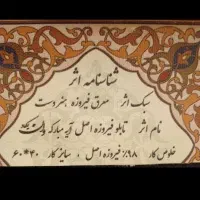 شناسنامه اثر
سبک اثر معرق فیروزه هنر دست
نام اثر تابلو فیروزه اصل آیه مبارکه
خلوص کار ٩٨٪ فیروزه اصل ، سایز کار ۴۰*۶۰